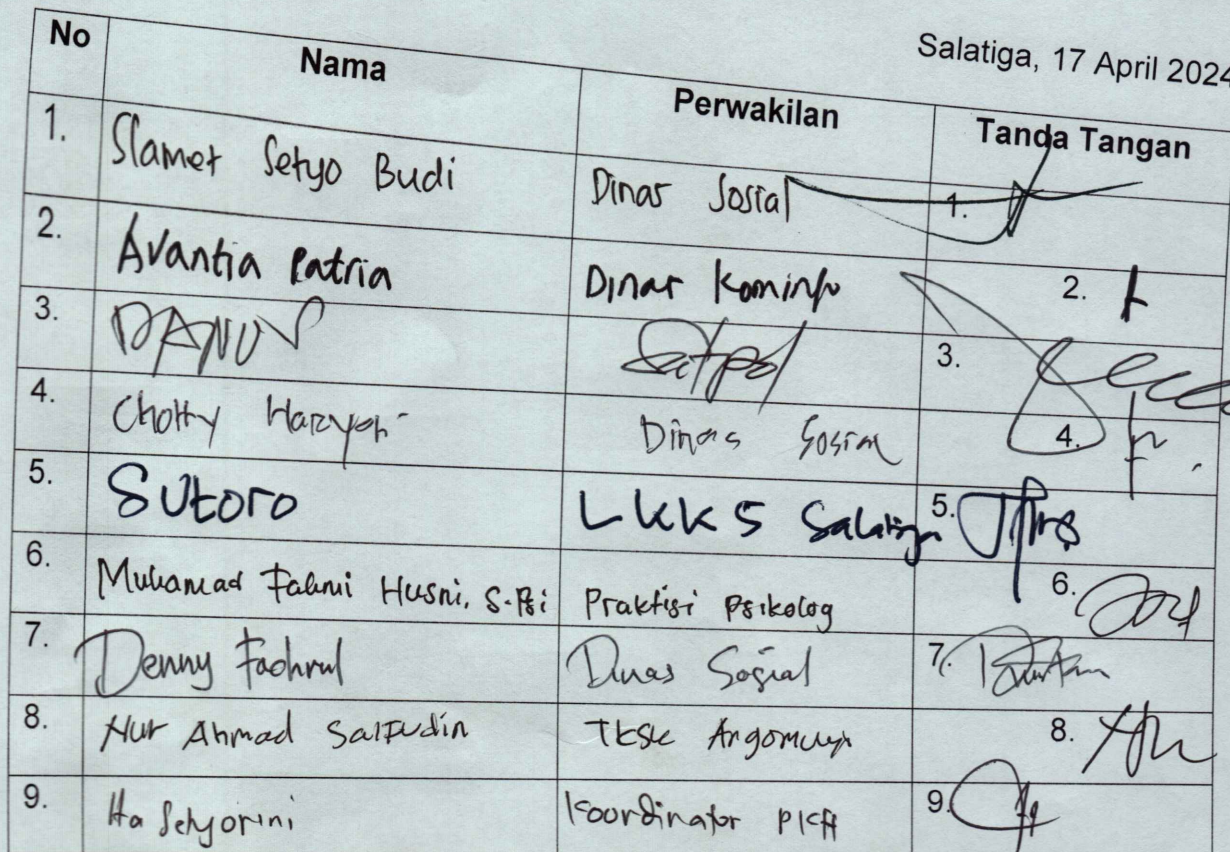 Salatiga, 17 April 2024
No Nama Perwakilan Tanda Tangan
1. Slamet Setyo Budi Dinas Sosial 1.
2. Avantia Patria Dinas Kominfo 2.
3. DANU Satpol 3.
4. Haryati Dinas Sosial 4.
5. SUtoro LKKS Salatiga 5.
6. Muhamad Fahmi Husni, S.Psi Praktisi Psikolog 6.
7. Denny Fachrul Dinas Sosial 7.
8. Nur Ahmad Saifudin TKSK Argomulyo 8.
9. Setyorini Koordinator PKH 9.